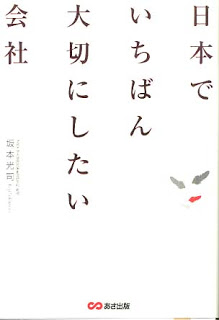 日本で
いちばん
大切にしたい
会社
坂本光司
あさ出版